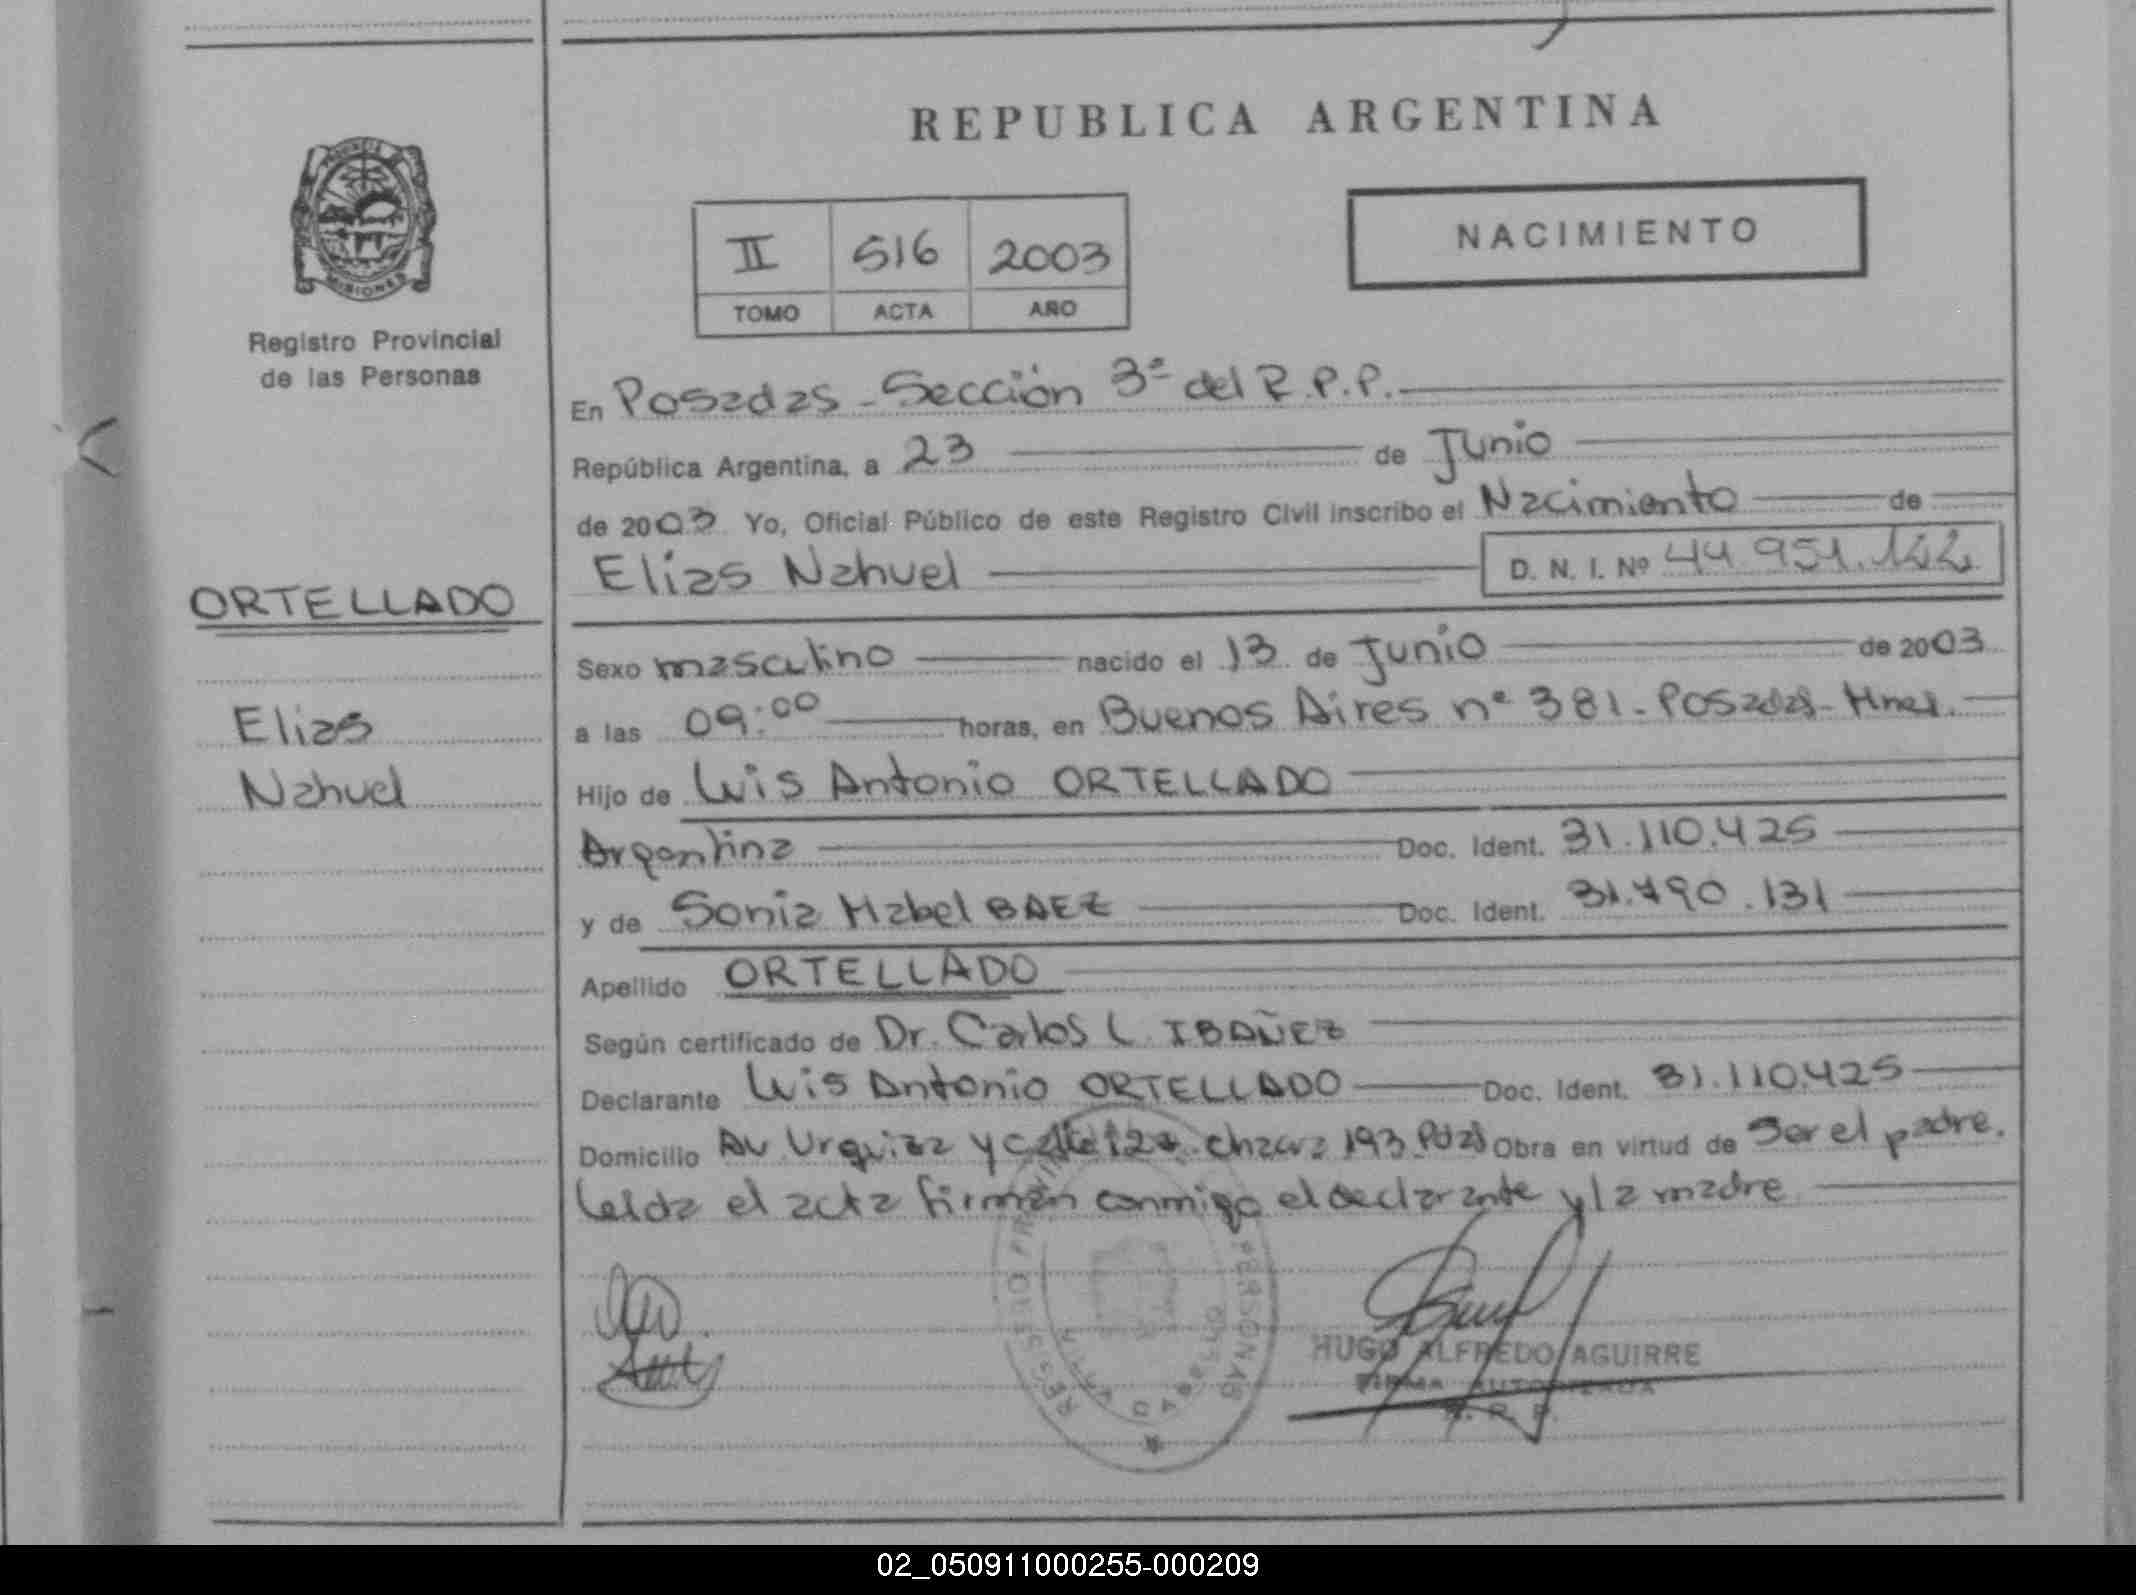 REPUBLICA ARGENTINA
PROVINCIA
MISIONES
Registro Provincial
de las Personas
II 516 2003
TOMO ACTA AÑO
NACIMIENTO
En Posadas - Sección 3ª del R.P.P.
República Argentina, a 23 de Junio
de 2003 Yo, Oficial Público de este Registro Civil inscribo el Nacimiento de
Elias Nahuel D. N. I. Nº 44.951.122
ORTELLADO
Elias
Nahuel
Sexo masculino nacido el 13 de Junio de 2003
a las 09:00 horas, en Buenos Aires nº 381 - Posadas - Mnes.
Hijo de Luis Antonio ORTELLADO
Argentina Doc. Ident. 31.110.425
y de Sonia Mabel BAEZ Doc. Ident. 31.790.131
Apellido ORTELLADO
Según certificado de Dr. Carlos L. IBAÑEZ
Declarante Luis Antonio ORTELLADO Doc. Ident. 31.110.425
Domicilio Av Urquiza y calle Chacra 193 Pdas Obra en virtud de Ser el padre.
Leida el acta firman conmigo el declarante y la madre
HUGO ALFREDO AGUIRRE
FIRMA AUTORIZADA
R. P. P.
02_050911000255-000209